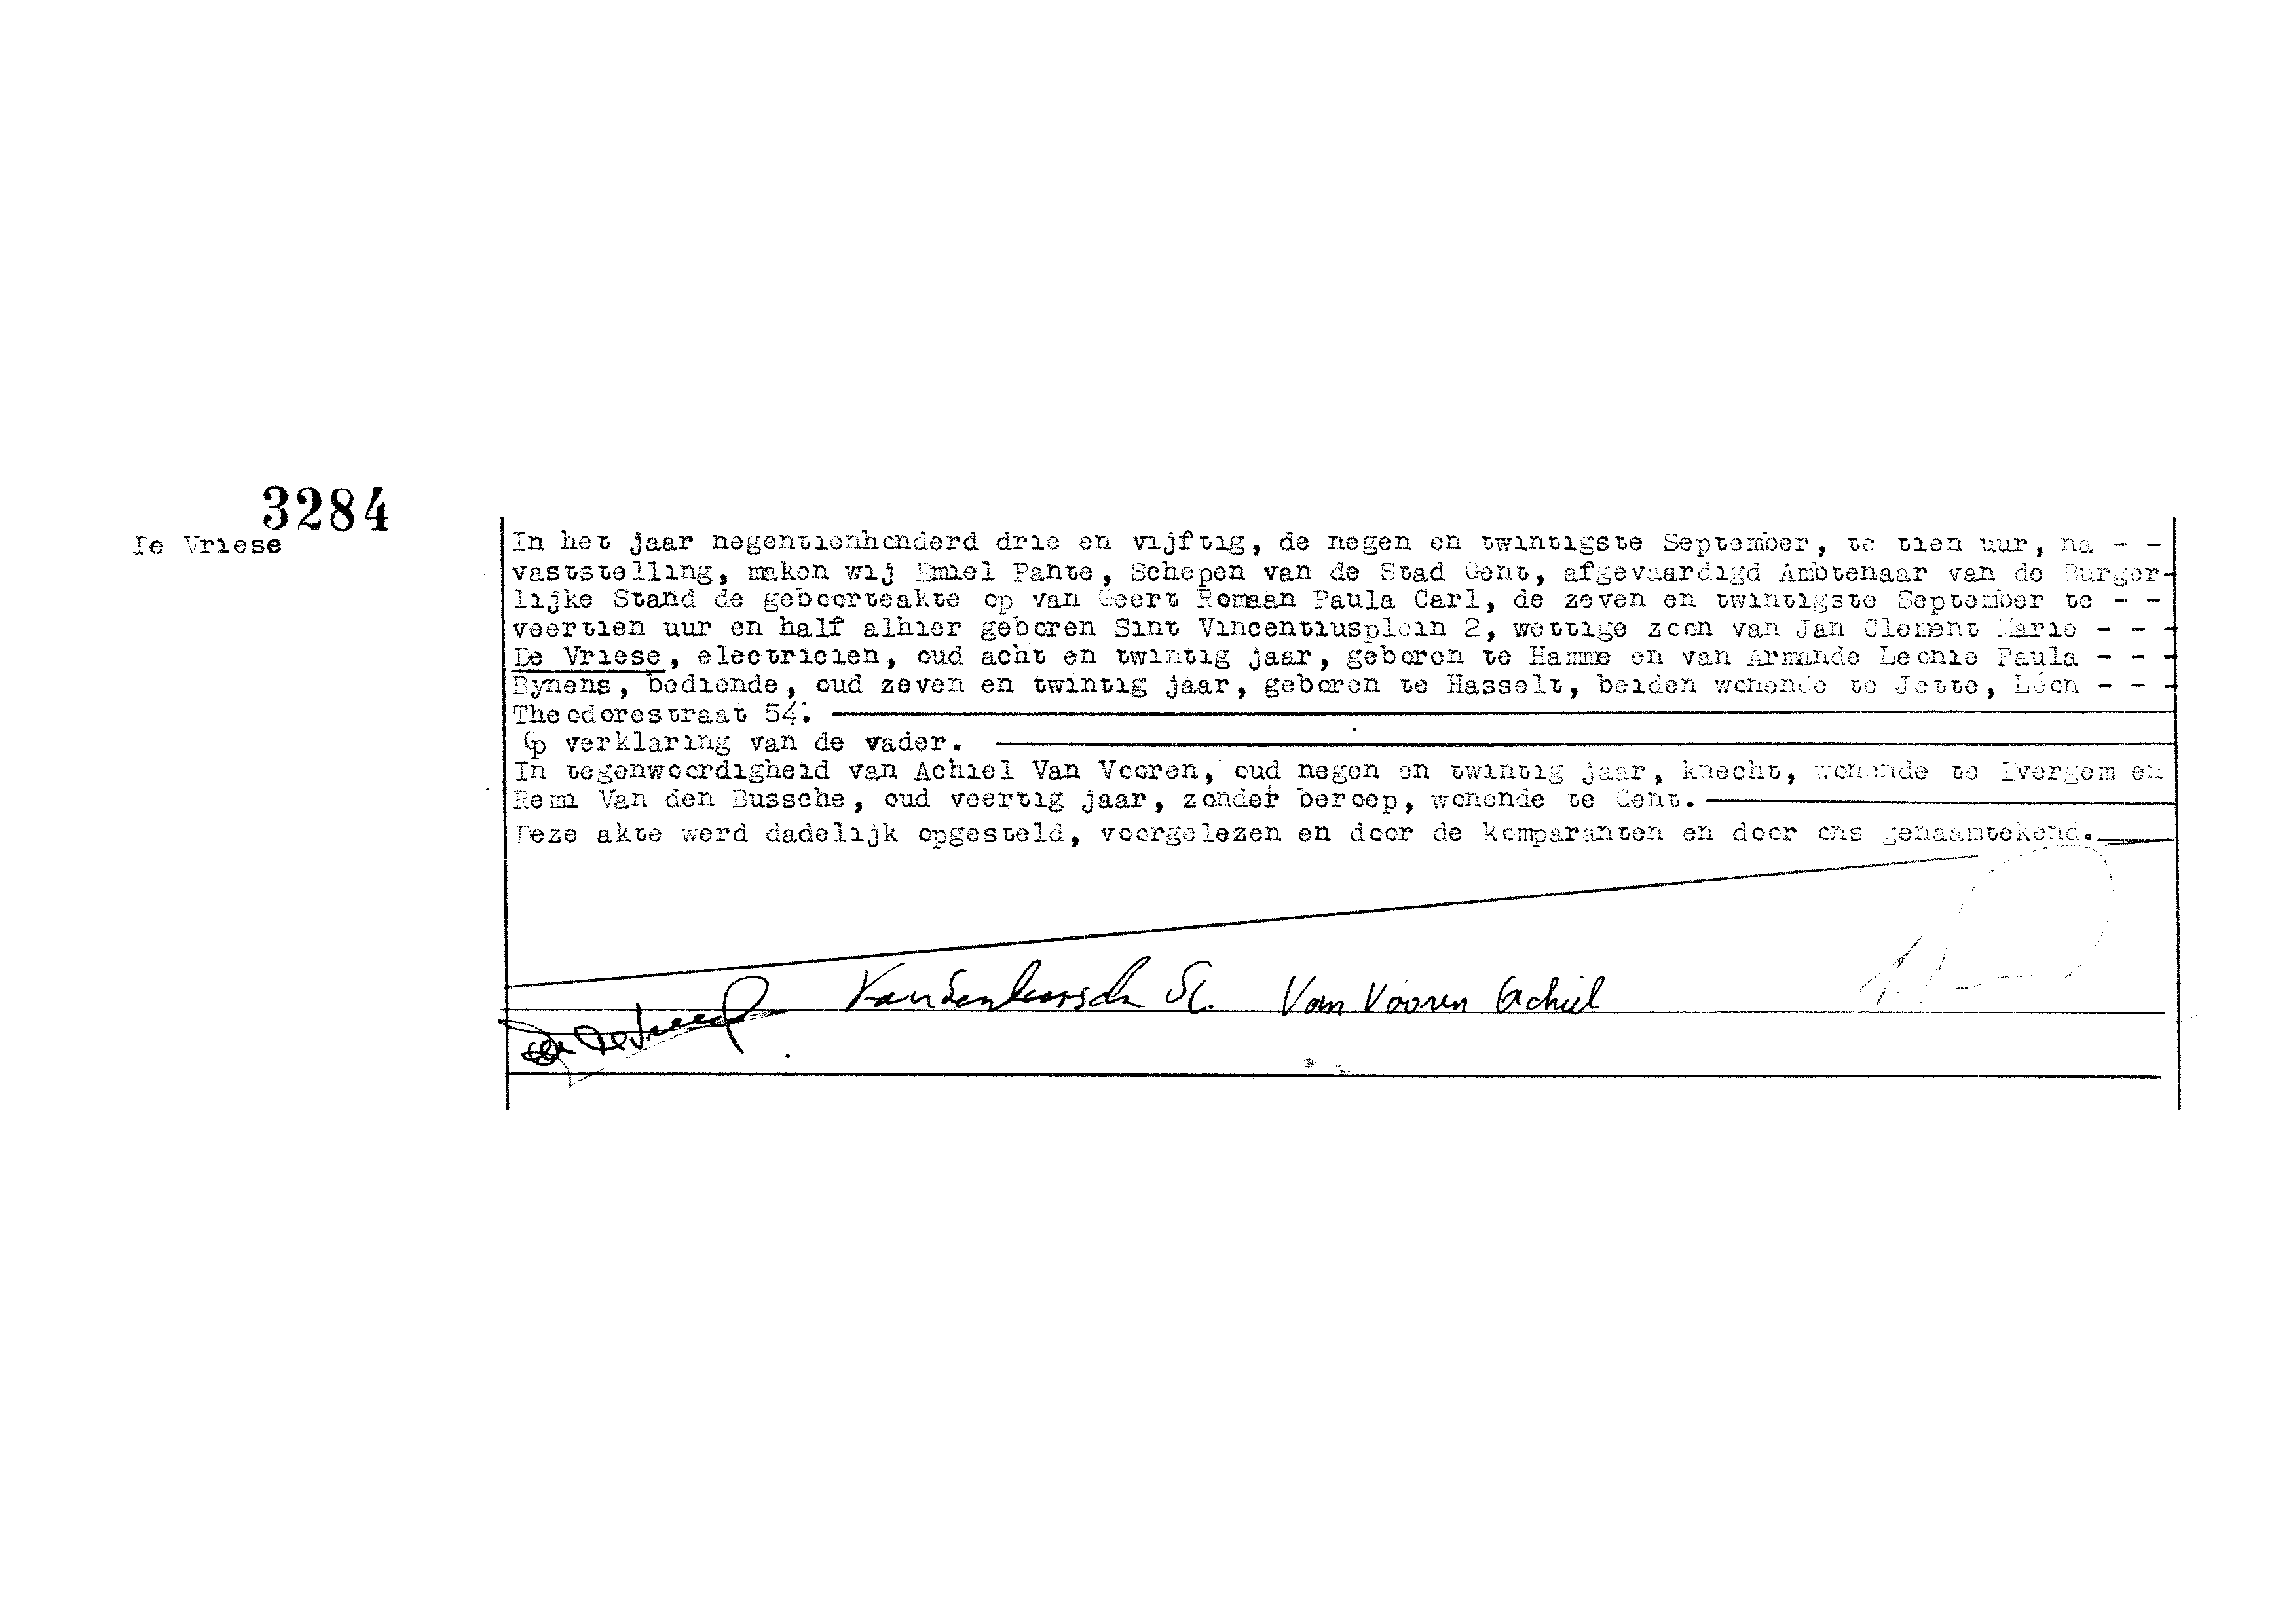 3284
De Vriese
In het jaar negentienhonderd drie en vijftig, de negen en twintigste September, te tien uur, na - -
vaststelling, maken wij Emiel Pante, Schepen van de Stad Gent, afgevaardigd Ambtenaar van de Burger-
lijke Stand de geboorteakte op van Geert Romaan Paula Carl, de zeven en twintigste September te - -
veertien uur en half alhier geboren Sint Vincentiusplein 2, wettige zoon van Jan Clement Marie - - -
De Vriese, electricien, oud acht en twintig jaar, geboren te Hamme en van Armande Leonie Paula - - -
Bynens, bediende, oud zeven en twintig jaar, geboren te Hasselt, beiden wonende te Jette, Léon - - -
Theodorestraat 54.
Op verklaring van de vader.
In tegenwoordigheid van Achiel Van Vooren, oud negen en twintig jaar, knecht, wonende te Evergem en
Remi Van den Bussche, oud veertig jaar, zonder beroep, wonende te Gent.
Deze akte werd dadelijk opgesteld, voorgelezen en door de komparanten en door ons genaamtekend.
Vandenbussche Van Vooren Achiel